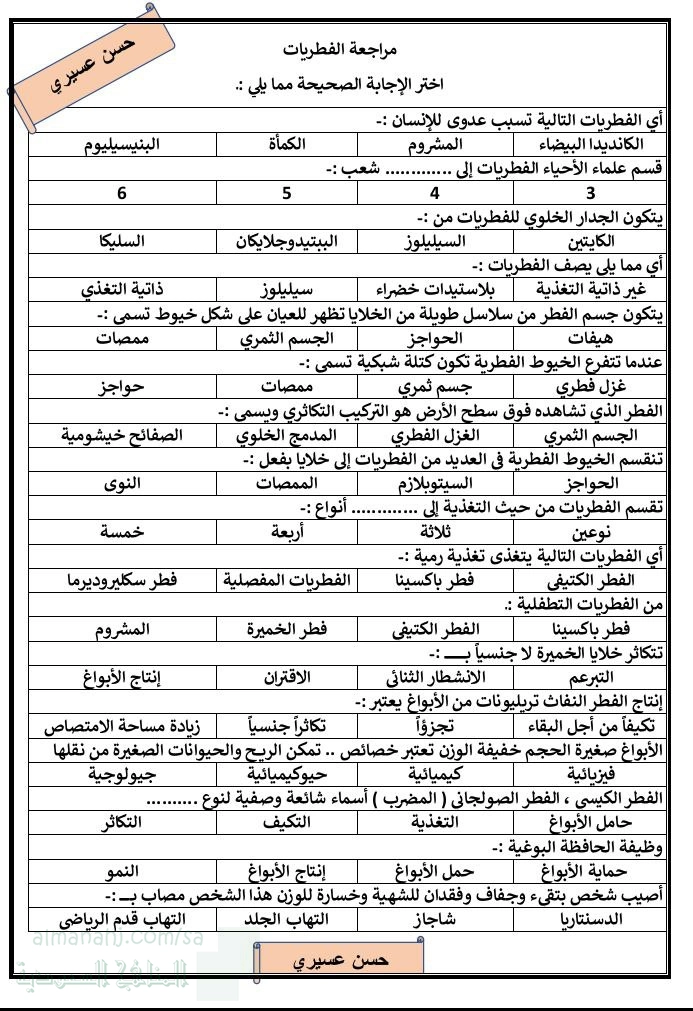 حسن عسيري
مراجعة الفطريات
اختر الإجابة الصحيحة مما يلي :.
أي الفطريات التالية تسبب عدوى للإنسان :-
الكانديدا البيضاء المشروم الكمأة البنيسيليوم
قسم علماء الأحياء الفطريات إلى ............. شعب :-
3 4 5 6
يتكون الجدار الخلوي للفطريات من :-
الكايتين السيليلوز الببتيدوجلايكان السليكا
أي مما يلي يصف الفطريات :-
غير ذاتية التغذية بلاستيدات خضراء سيليلوز ذاتية التغذي
يتكون جسم الفطر من سلاسل طويلة من الخلايا تظهر للعيان على شكل خيوط تسمى :-
هيفات الحواجز الجسم الثمري ممصات
عندما تتفرع الخيوط الفطرية تكون كتلة شبكية تسمى :-
غزل فطري جسم ثمري ممصات حواجز
الفطر الذي تشاهده فوق سطح الأرض هو التركيب التكاثري ويسمى :-
الجسم الثمري الغزل الفطري المدمج الخلوي الصفائح خيشومية
تنقسم الخيوط الفطرية في العديد من الفطريات إلى خلايا بفعل :-
الحواجز السيتوبلازم الممصات النوى
تقسم الفطريات من حيث التغذية إلى ............. أنواع :-
نوعين ثلاثة أربعة خمسة
أي الفطريات التالية يتغذى تغذية رمية :-
الفطر الكتيفي فطر باكسينا الفطريات المفصلية فطر سكليروديرما
من الفطريات التطفلية :.
فطر باكسينا الفطر الكتيفي فطر الخميرة المشروم
تتكاثر خلايا الخميرة لا جنسياً بـــــ :-
التبرعم الانشطار الثنائي الاقتران إنتاج الأبواغ
إنتاج الفطر النفاث تريليونات من الأبواغ يعتبر :-
تكيفاً من أجل البقاء تجزؤاً تكاثراً جنسياً زيادة مساحة الامتصاص
الأبواغ صغيرة الحجم خفيفة الوزن تعتبر خصائص .. تمكن الريح والحيوانات الصغيرة من نقلها
فيزيائية كيميائية حيوكيميائية جيولوجية
الفطر الكيسي ، الفطر الصولجاني ( المضرب ) أسماء شائعة وصفية لنوع ..........
حامل الأبواغ التغذية التكيف التكاثر
وظيفة الحافظة البوغية :-
حماية الأبواغ حمل الأبواغ إنتاج الأبواغ النمو
أصيب شخص بتقيء وجفاف وفقدان للشهية وخسارة للوزن هذا الشخص مصاب بـــ :-
الدسنتاريا شاجاز التهاب الجلد التهاب قدم الرياضي
almanahj.com/sa
المناهج السعودية
حسن عسيري